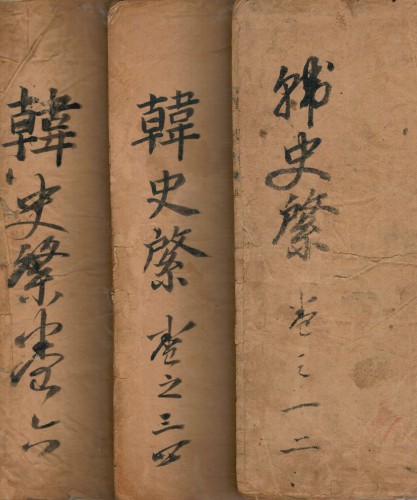 韓史綮 卷之一二
韓史綮 卷之三四
韓史綮卷六